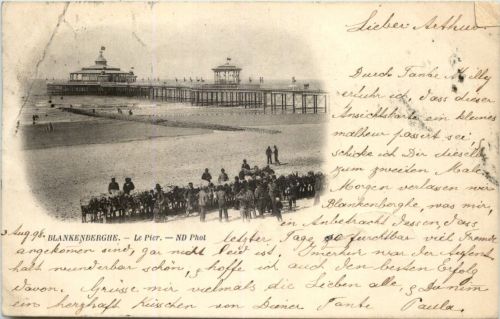 Lieber Arthur
Durch Tante Milly
erfuhr ich dass dieser
Ansichtskarte ein kleines
malheur passirt sei,
schicke ich Dir dieselbe
zum zweiten Male.
Morgen verlassen wir
Blankenberghe, was mir,
in Anbetracht dessen, dass
3 Aug. 98.
BLANKENBERGHE. - Le Pier. - ND Phot
letzter Tage so furchtbar viel Fremde
angekommen sind, gar nicht leid ist. Immerhin war der Aufent
halt wunderbar schön, & hoffe ich auch den besten Erfolg
davon. Grüsse mir vielmals die Lieben alle, & Du nimm
ein herzhaft Küsschen von Deiner Tante Paula.